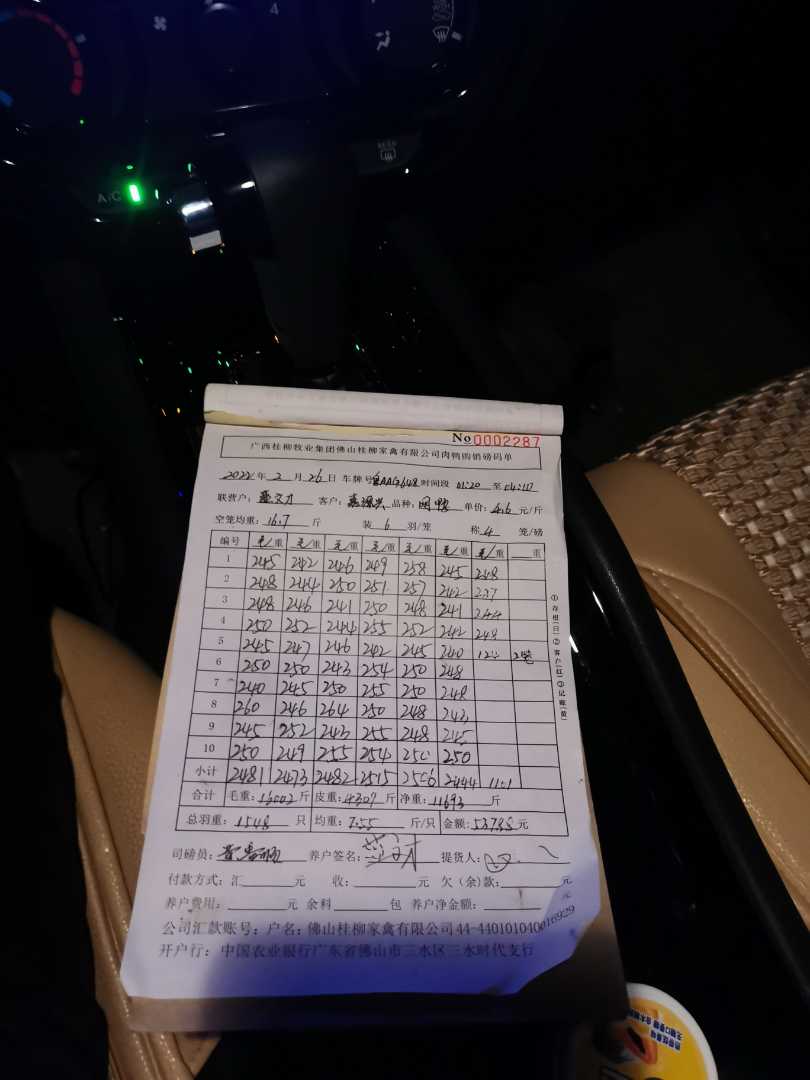 4
A/C
No 0002287
广西桂柳牧业集团佛山桂柳家禽有限公司肉鸭购销磅码单
2022年 2 月 26日 车牌号 时间段 01:20 至 04:10
联营户: 客户: 品种: 肉鸭 单价: 4.6 元/斤
空笼均重: 16.7 斤 装 6 羽/笼 称 4 笼/磅
编号 毛/重 毛/重 毛/重 毛/重 毛/重 毛/重 毛/重 重
1 245 242 246 249 258 245 248
2 248 244 250 251 257 242 237
3 248 246 241 250 248 241 244
4 250 252 244 255 252 242 248
5 245 247 246 242 245 240 2笼
6 250 250 243 254 250 248
7 240 245 250 255 250 248
8 260 246 264 250 248 243
9 245 252 243 255 248 245
10 250 249 255 254 250 250
小计 2481 2473 2482 2515 2506 2444 1101
合计 毛重: 16002 斤 皮重: 4309 斤 净重: 11693 斤
总羽重: 1548 只 均重: 7.55 斤/只 金额: 53788 元
司磅员: 养户签名: 提货人:
付款方式: 汇 元 收: 元 欠(余)款: 元
养户费用: 元 余料 包 养户净金额: 元
公司汇款账号: 户名: 佛山桂柳家禽有限公司44-440101040016929
开户行: 中国农业银行广东省佛山市三水区三水时代支行
①存根(白)②客户(红)③记账(黄)